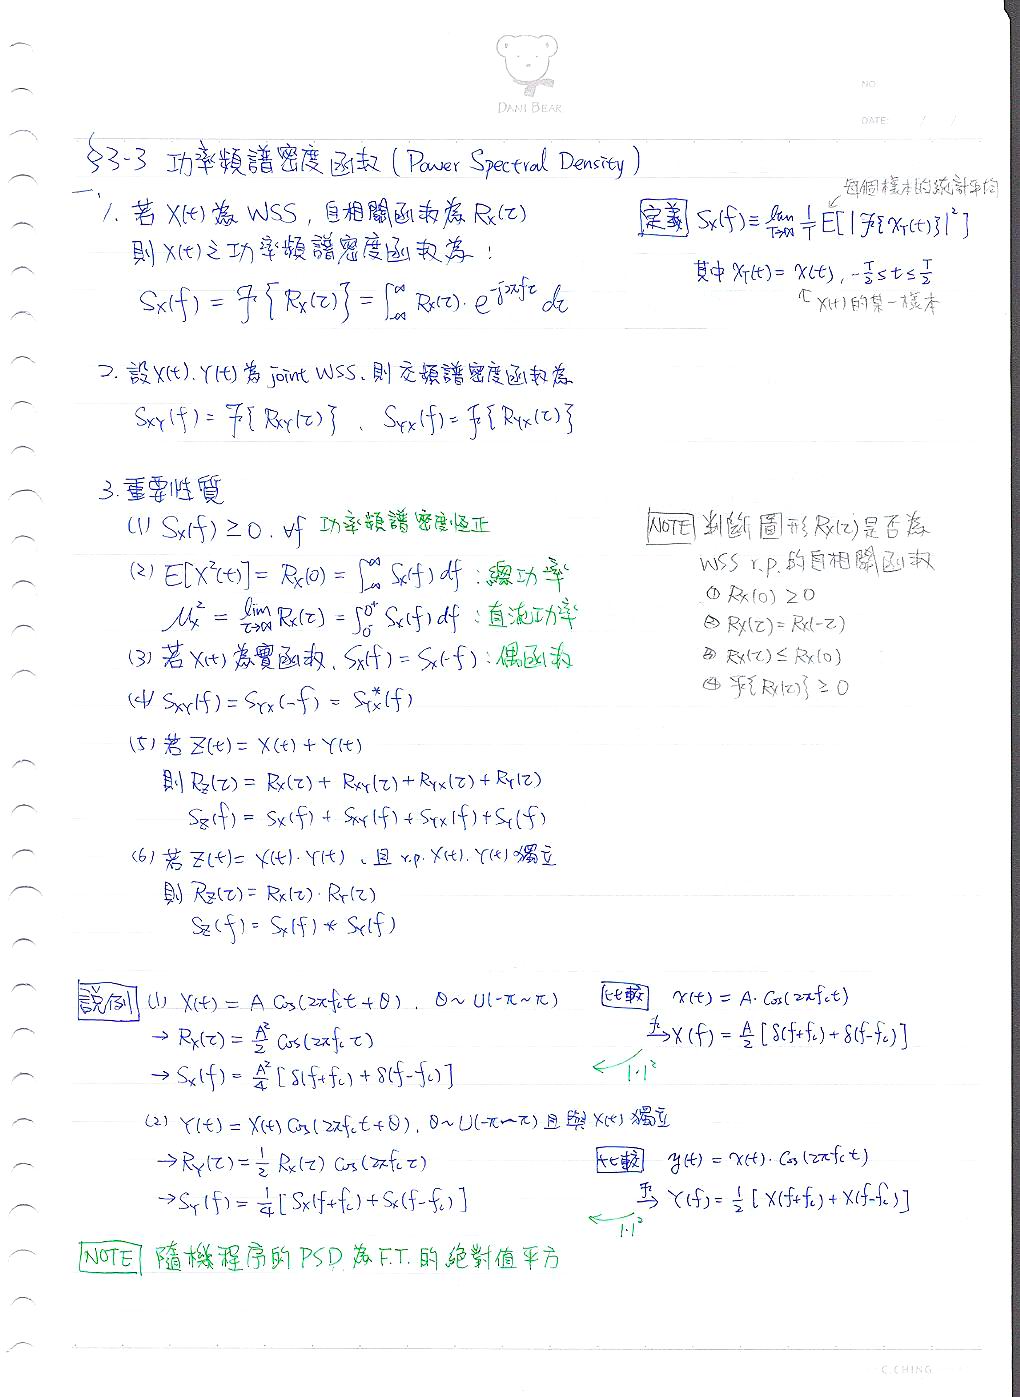 DANI BEAR
NO.
DATE / /
§3-3 功率頻譜密度函数 (Power Spectral Density)
一、
1. 若 X(t) 為 WSS, 自相關函数為 Rx(τ)
則 X(t) 之功率頻譜密度函数為:
Sx(f) = ℱ{Rx(τ)} = ∫_{-∞}^{∞} Rx(τ)· e^{-j2πfτ} dτ
每個樣本的統計平均
定義 Sx(f) ≡ lim_{T→∞} 1/T E[|ℱ{x_T(t)}|²]
其中 x_T(t) = x(t), -T/2 ≤ t ≤ T/2
↑ X(t)的某一樣本
2. 設 X(t). Y(t) 為 joint WSS, 則交頻譜密度函数為
S_XY(f) = ℱ{R_XY(τ)} , S_YX(f) = ℱ{R_YX(τ)}
3. 重要性質
(1) Sx(f) ≥ 0, ∀f 功率頻譜密度恆正
(2) E[X²(t)] = Rx(0) = ∫_{-∞}^{∞} Sx(f) df : 總功率
μx² = lim_{τ→∞} Rx(τ) = ∫_{0^-}^{0^+} Sx(f) df : 直流功率
(3) 若 X(t) 為實函数, Sx(f) = Sx(-f) : 偶函数
(4) S_XY(f) = S_YX(-f) = S_YX*(f)
(5) 若 Z(t) = X(t) + Y(t)
則 R_Z(τ) = Rx(τ) + R_XY(τ) + R_YX(τ) + R_Y(τ)
S_Z(f) = Sx(f) + S_XY(f) + S_YX(f) + S_Y(f)
(6) 若 Z(t) = X(t)·Y(t) , 且 r.p. X(t). Y(t) 獨立
則 R_Z(τ) = Rx(τ)·R_Y(τ)
S_Z(f) = Sx(f) * S_Y(f)
NOTE 判斷圖形 Rx(τ) 是否為
WSS r.p. 的自相關函数
① Rx(0) ≥ 0
② Rx(τ) = Rx(-τ)
③ Rx(τ) ≤ Rx(0)
④ ℱ{Rx(τ)} ≥ 0
說例 (1) X(t) = A Cos(2πfct + θ) , θ ~ U(-π ~ π)
→ Rx(τ) = A²/2 Cos(2πfcτ)
→ Sx(f) = A²/4 [δ(f+fc) + δ(f-fc)]
比較 x(t) = A·Cos(2πfct)
ℱ→ X(f) = A/2 [δ(f+fc) + δ(f-fc)]
|·|²
(2) Y(t) = X(t) Cos(2πfct + θ), θ ~ U(-π ~ π) 且與 X(t) 獨立
→ R_Y(τ) = 1/2 Rx(τ) Cos(2πfcτ)
→ S_Y(f) = 1/4 [Sx(f+fc) + Sx(f-fc)]
比較 y(t) = x(t)·Cos(2πfct)
ℱ→ Y(f) = 1/2 [X(f+fc) + X(f-fc)]
|·|²
NOTE 隨機程序的 PSD 為 F.T. 的絕對值平方
C.CHING